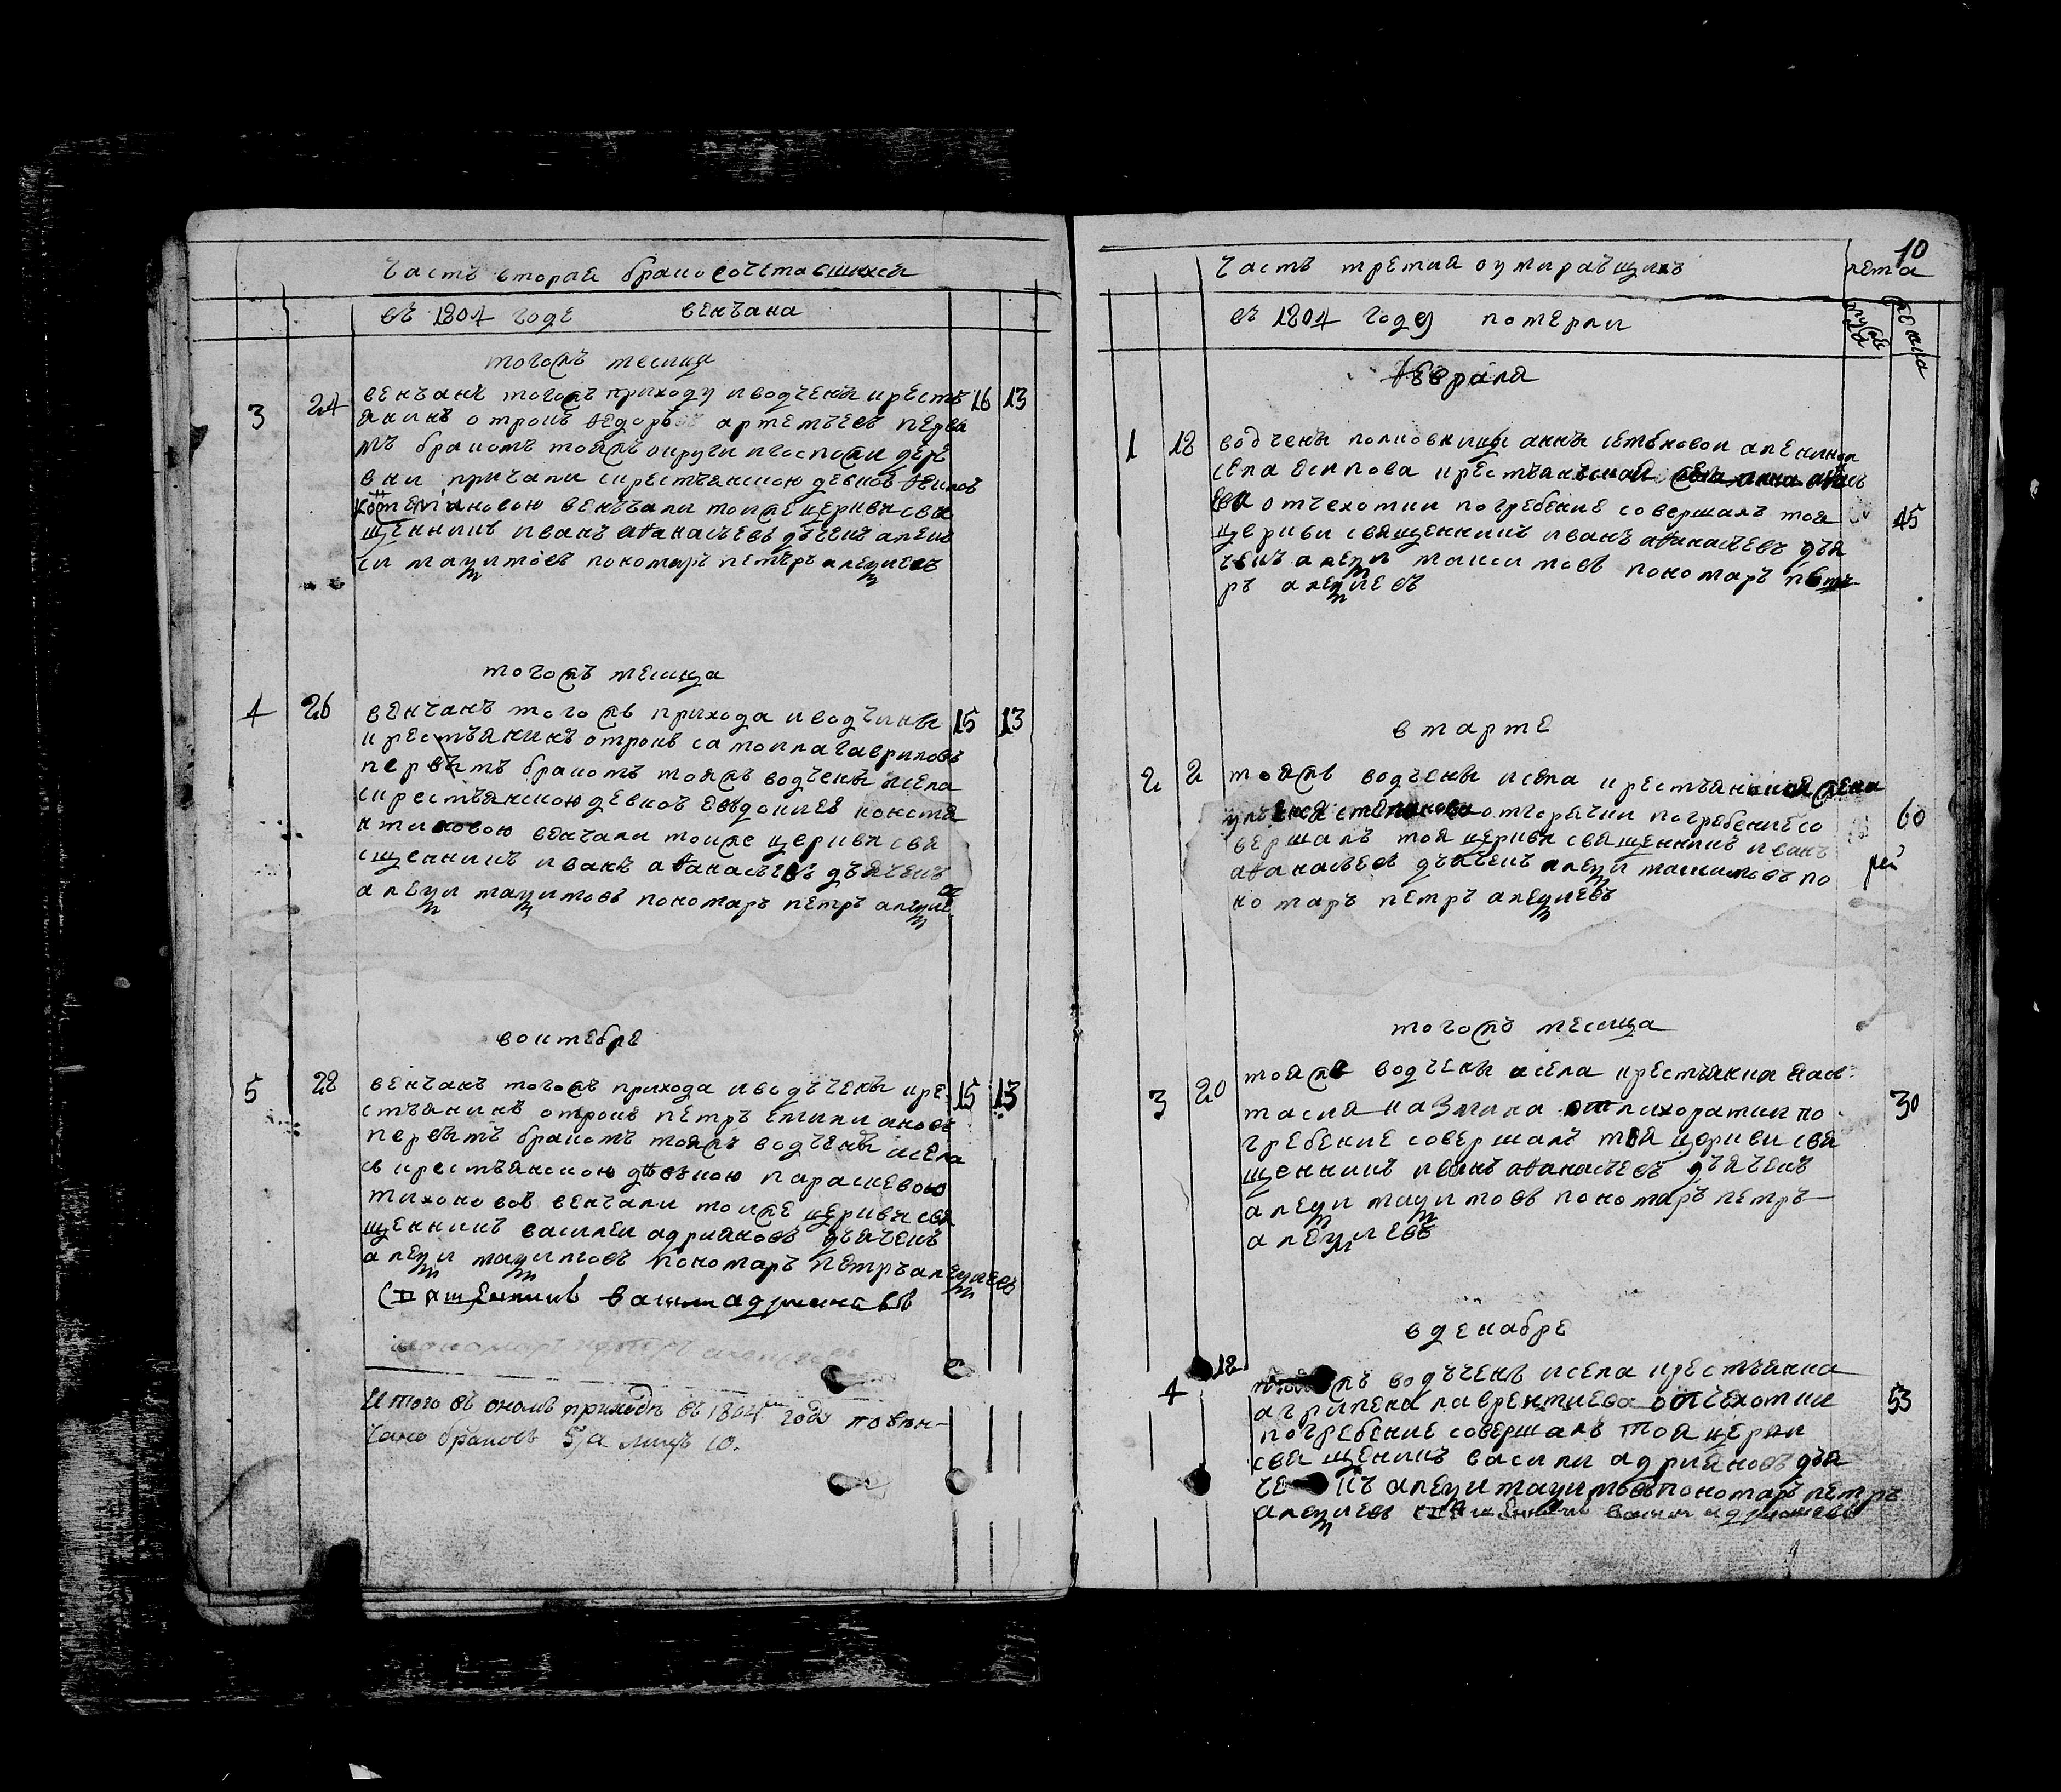 часть вторая браносочетавшихся
въ 1804 годе венчана
тогожъ месяца
3 24 венчанъ тогожъ приходу и водчены крестъ 16 13
янинъ отрокъ ѳедоръ артемьевъ первы
мъ бракомъ тояжъ округи
вни крестьянскою девкою
венчали тоиже церкви свя
щенникъ иванъ аѳанасьевъ дьячекъ алек
си маѯимовъ пономаръ петръ алеѯиевъ
тогожъ месяца
4 26 венчанъ тогожъ прихода и водчины 15 13
крестьянинъ отрокъ самоила гавриловъ
первымъ бракомъ тояжъ водчены исела
скрестьянскою девкою евдокиев конста
нтиновою венчали тоиже церкви свя
щенникъ иванъ аѳанасьевъ дьячекъ
алеѯи маѯимовъ пономаръ петръ алеѯие
воктебре
5 28 венчанъ тогожъ прихода иводъчены кре 15 13
стьянинъ отрокъ петръ емилиановъ
первымъ бракомъ тояжъ водчены исела
съ крестьянскою девкою параскевою
тихоновов венчали тоиже церкви свя
щенникъ василеи адрияновъ дьячекъ
алеѯи маѯимовъ пономаръ петръ алеѯиевъ
Священникъ васили адрияновъ
пономаръ петръ алеѯиевъ
Итого въ ономъ приходѣ въ 1804мъ годе повѣн-
чано браковъ 5, а лицъ 10.
10
часть третия оумиравщихъ лета
въ 1804 году померли
ѳевраля
1 18 водчены полковницы анны
села есипова крестьянская
отчехотки погребение совершалъ тоя 45
церкви священникъ иванъ аѳанасьевъ дья
чекъ алеѯи максимовъ пономаръ пет
ръ алеѯиевъ
в марте
2 2 тояжъ водчены исела крестьянская жена
отгорячки погребение со 60
вершалъ тоя церкви священникъ иванъ
аѳанасьевъ дьячекъ алеѯи максимовъ по
номаръ петръ алеѯиевъ
тогожъ месяца
3 20 тояже водчены исела крестьянка нас
тасия казмина отлихоратки по 30
гребение совершалъ тоя церкви свя
щенникъ иванъ аѳанасьевъ дьячекъ
алеѯи маѯимовъ пономаръ петръ
алеѯиевъ
вденабре
4 12 водъчены исела крестьянка
агрипена лаврентиева отчехотки 53
погребение совершалъ тоя церкви
священикъ васили адрияновъ дья
чекъ алеѯи маѯимовъ пономаръ петръ
алеѯиевъ священникъ васили адрияновъ